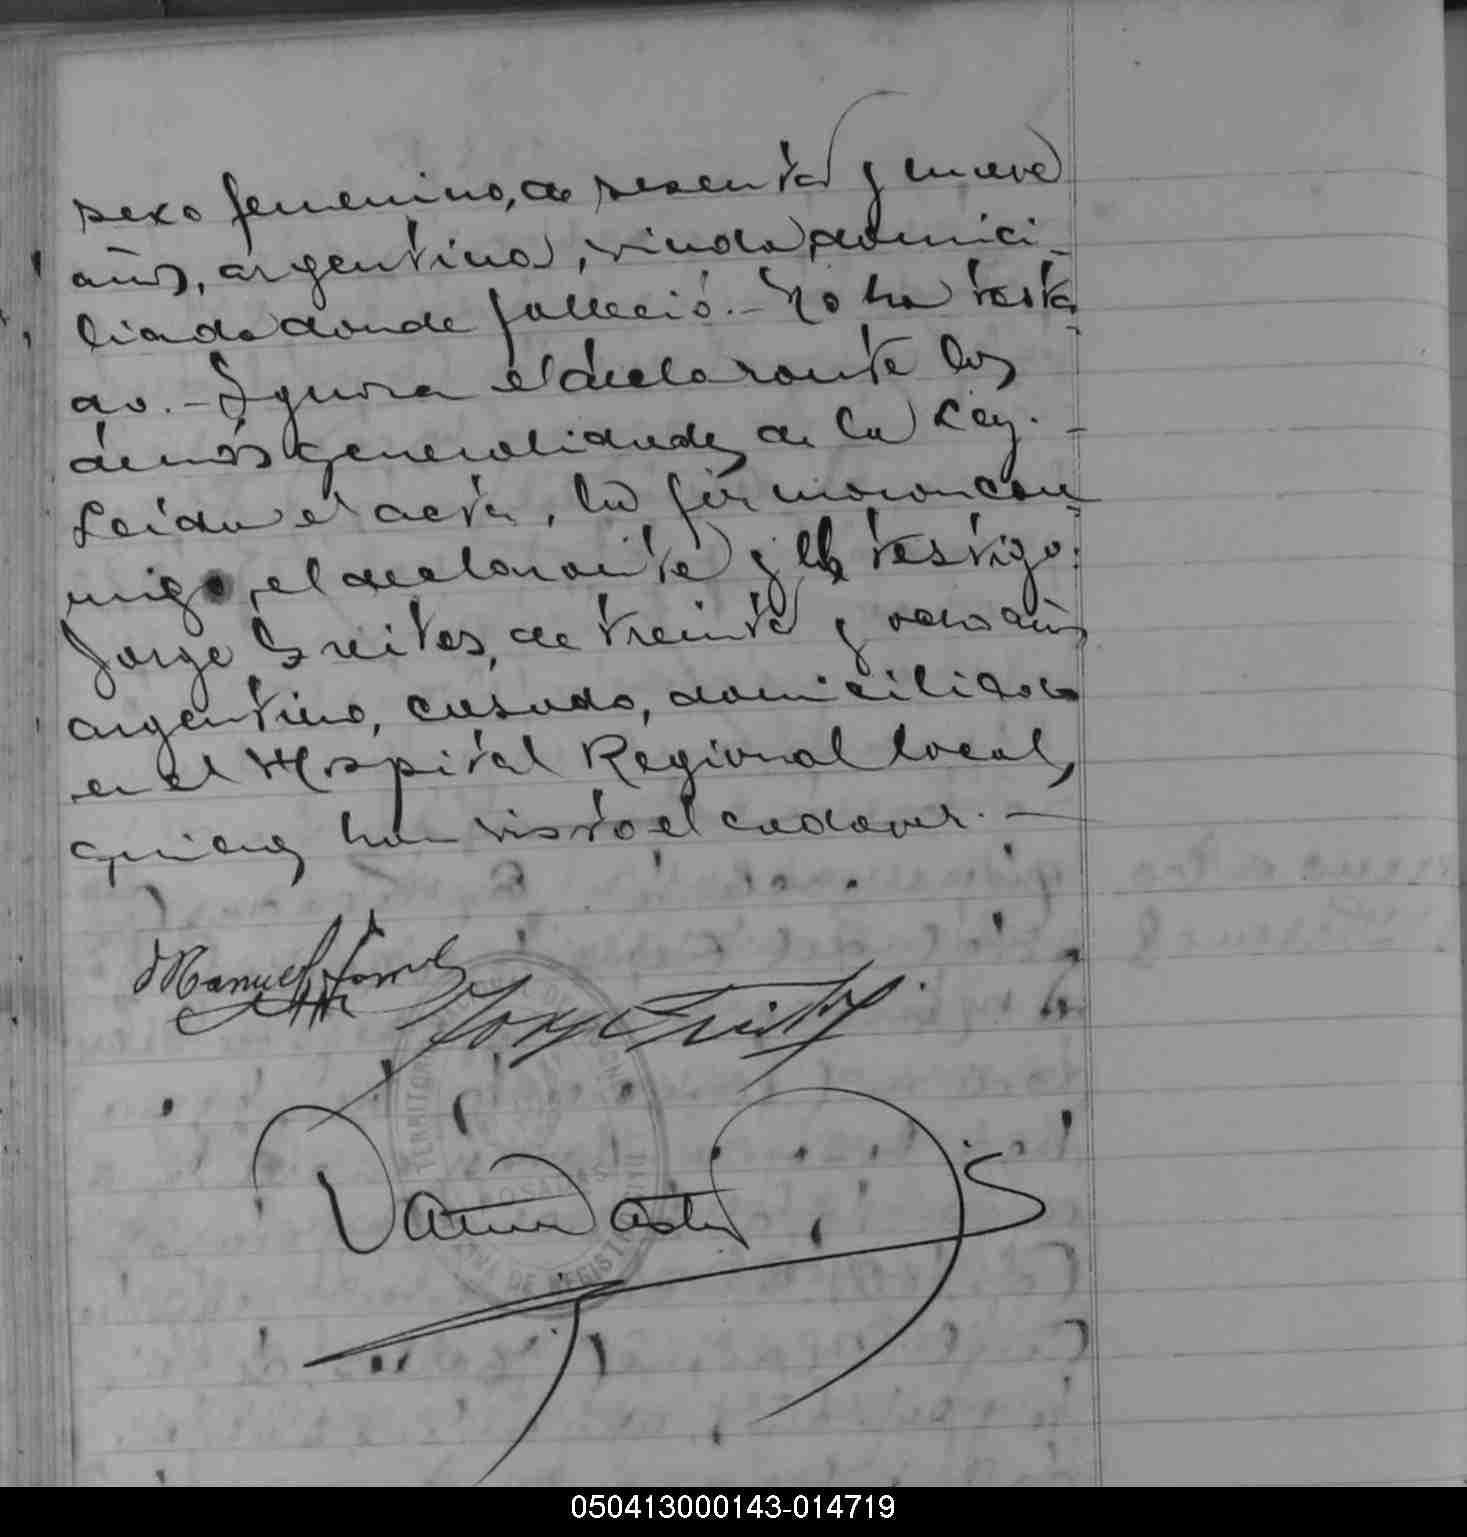 sexo femenino, de sesenta y nueve
años, argentina, viuda, domici-
liada donde falleció.- No ha testa-
do.- Ignora el declarante las
demás generalidades de la Ley.-
Leída el acta, la firmaron con-
migo, el declarante y el testigo:
Jorge Freites, de treinta y ocho años
argentino, casado, domiciliado
en el Hospital Regional local,
quienes han visto el cadaver.-
Manuel
Jorge Freites
TERRITORI
DE REGIST
050413000143-014719